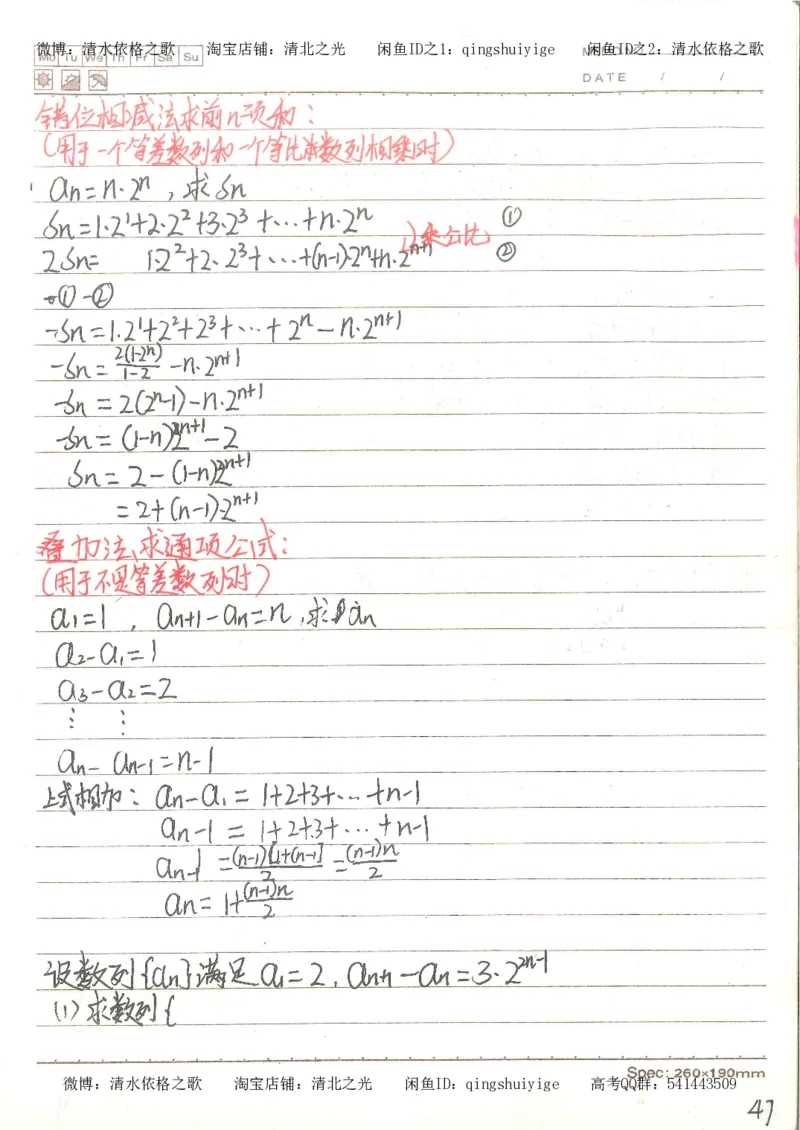 微博：清水依格之歌 淘宝店铺：清北之光 闲鱼ID之1：qingshuiyige 闲鱼ID之2：清水依格之歌
Mo Tu We Th Fr Sa Su
DATE / /
错位相减法求前n项和：
(用于一个等差数列和一个等比数列相乘时)
an=n·2^n，求Sn
Sn=1·2^1+2·2^2+3·2^3+…+n·2^n ①
)乘公比
2Sn= 1·2^2+2·2^3+…+(n-1)·2^n+n·2^(n+1) ②
①-②
-Sn=1·2^1+2^2+2^3+…+2^n-n·2^(n+1)
-Sn=2(1-2^n)/(1-2)-n·2^(n+1)
-Sn=2(2^n-1)-n·2^(n+1)
-Sn=(1-n)2^(n+1)-2
Sn=2-(1-n)2^(n+1)
=2+(n-1)·2^(n+1)
叠加法求通项公式：
(用于不是等差数列时)
a1=1，an+1-an=n，求an
a2-a1=1
a3-a2=2
⋮ ⋮
an-an-1=n-1
上式相加：an-a1=1+2+3+…+n-1
an-1=1+2+3+…+n-1
an-1=(n-1)[1+(n-1)]/2=(n-1)n/2
an=1+(n-1)n/2
设数列{an}满足a1=2，an+1-an=3·2^(2n-1)
(1)求数列{
Spec: 260×190mm
微博：清水依格之歌 淘宝店铺：清北之光 闲鱼ID：qingshuiyige 高考QQ群：541443509
47